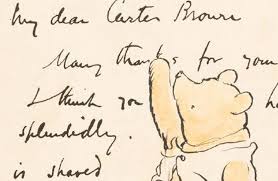 My dear Carter Brown
Many thanks for your
I think you
splendidly.
is shaved